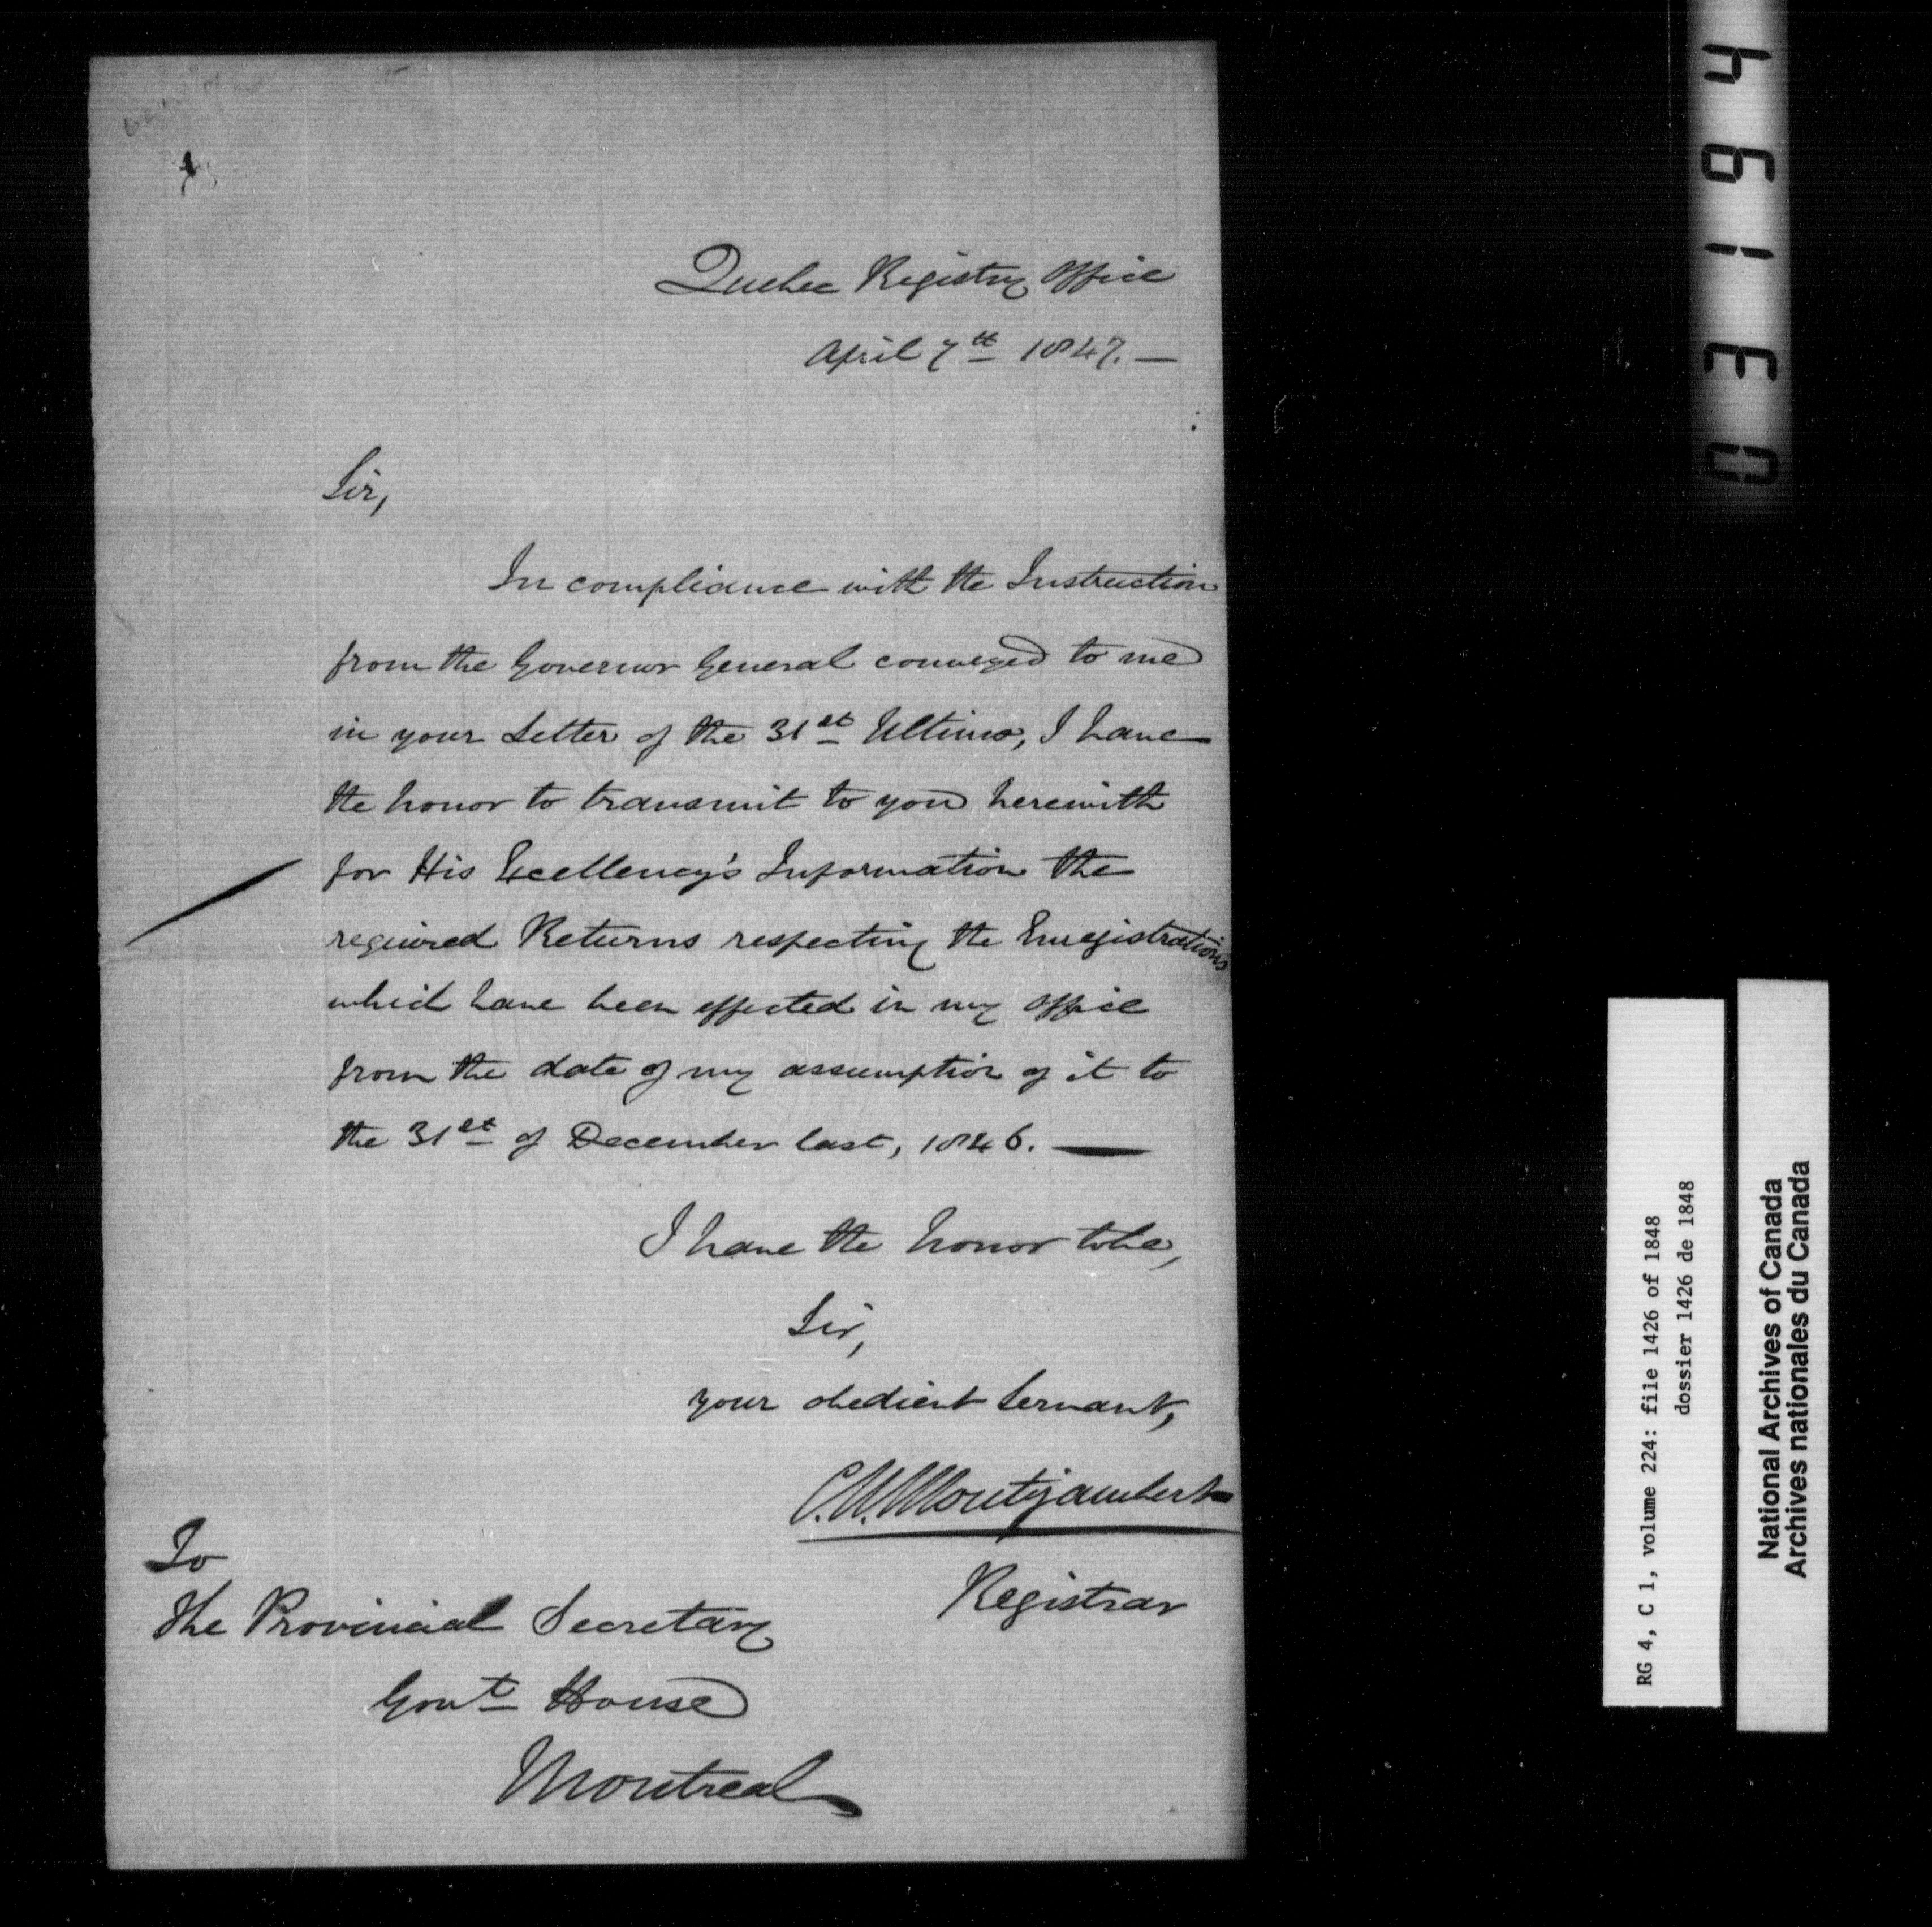 Quebec Registry Office
April 7th 1847. —
Sir,
In compliance with the Instruction
from the Governor General conveyed to me
in your Letter of the 31st Ultimo, I have
the honor to transmit to you herewith
for His Excellency's Information the
required Returns respecting the Enregistrations
which have been effected in my office
from the date of my assumption of it to
the 31st of December last, 1846. —
I have the honor to be,
Sir,
your obedient Servant,
C. N. Montizambert
Registrar
To
The Provincial Secretary
Govt House
Montreal
031694
RG 4, C 1, volume 224: file 1426 of 1848
dossier 1426 de 1848
National Archives of Canada
Archives nationales du Canada